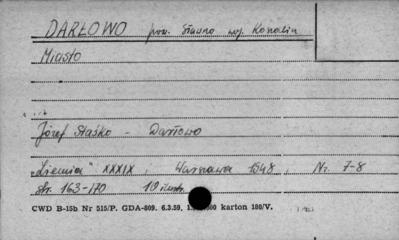 DARŁOWO pow. Sławno woj. Koszalin
Miasto
Józef Staśko - Darłowo
"Ziemia" XXXIX, Warszawa 1948, Nr. 7-8
str. 163-170 10 ilustr.
CWD B-15b Nr 515/P. GDA-809. 6.3.59, karton 180/V.